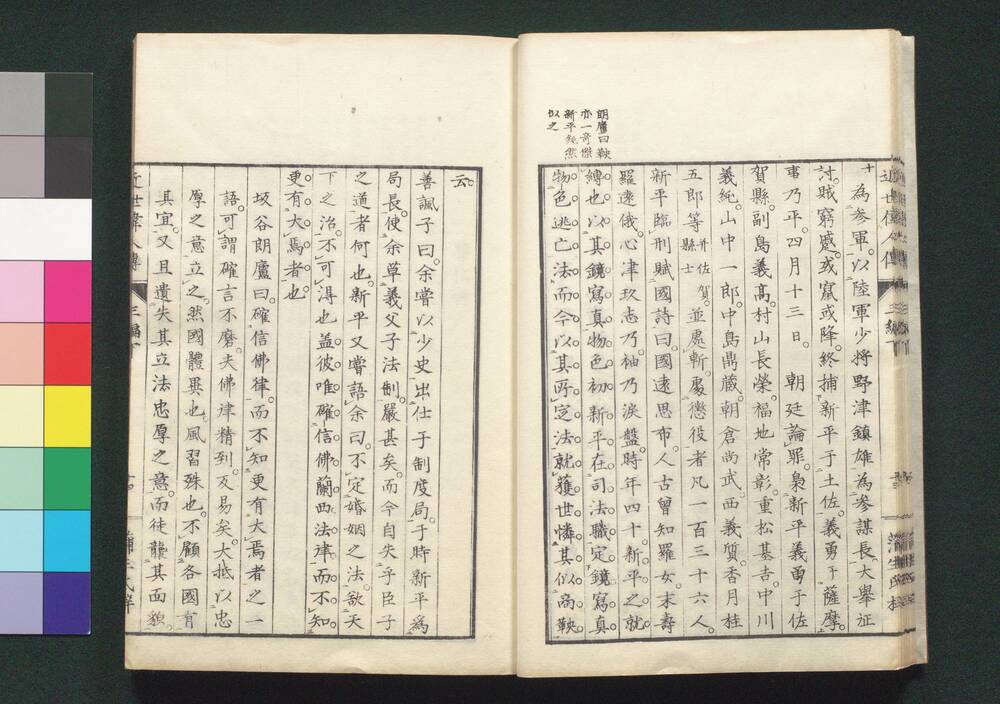 朗廬曰鞅
亦一奇傑
新平純然
似之
為參軍。以陸軍少將野津鎮雄為參謀長。大舉征
討。賊窮蹙。或竄或降。終捕新平于土佐。義勇于薩摩。
事乃平。四月十三日。朝廷論罪。梟新平義勇于佐
賀縣。副島義高。村山長榮。福地常彰。重松基吉。中川
義純。山中一郎。中島鼎藏。朝倉尚武。西義質。香月桂
五郎等佐賀縣士並處斬。處懲役者凡一百三十六人。
新平臨刑賦國詩曰國遠思布。人古曾知羅女。末壽
羅遠俄。心津玖志乃袖乃淚盤。時年四十。新平之就
縛也。以其鏡寫真物色。初新平在司法職。定鏡寫真
物色逃亡法。而今以其所定法就獲。世憐其似商鞅
云。
善諷子曰。余嘗以少史出仕于制度局。于時新平為
局長。使余草義父子法制。嚴甚矣。而今自失乎臣子
之道者何也。新平又嘗語余曰。不定婚姻之法。欲天
下之治。不可得也。蓋彼唯確信佛蘭西法律。而不知
更有大焉者也
坂谷朗廬曰。確信佛律。而不知更有大焉者之一
語。可謂確言不磨。夫佛律精到。不易矣。大抵以忠
厚之意立之。然國體異也。風習殊也。不顧各國有
其宜。又且遺失其立法忠厚之意。而徒襲其面貌。